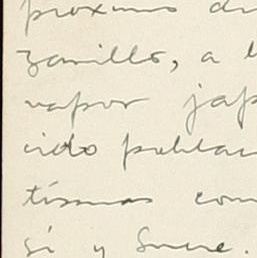 proximo di
zanillo, a b
vapor jap
cido poblac
tísimas com
sí y Sucre.